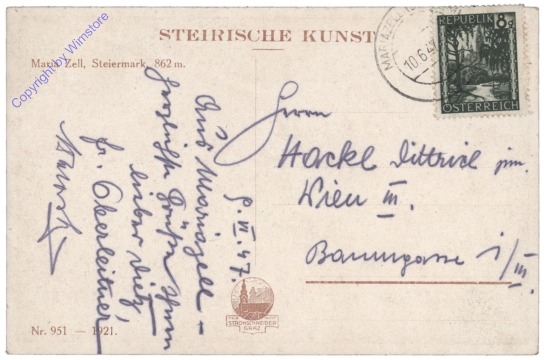 STEIRISCHE KUNST
Maria Zell, Steiermark, 862 m.
MARIAZELL
10.6.47
REPUBLIK
8g
ÖSTERREICH
Aus Mariazell –
9. VI. 47.
herzlichste Grüße Ihnen
lieber
fr. Oberleitner
Herrn
Hackl Dittrich jun.
Wien III.
Baumgasse 1/III.
STROHSCHNEIDER
GRAZ
Nr. 951 — 1921.
Copyright by Winstore